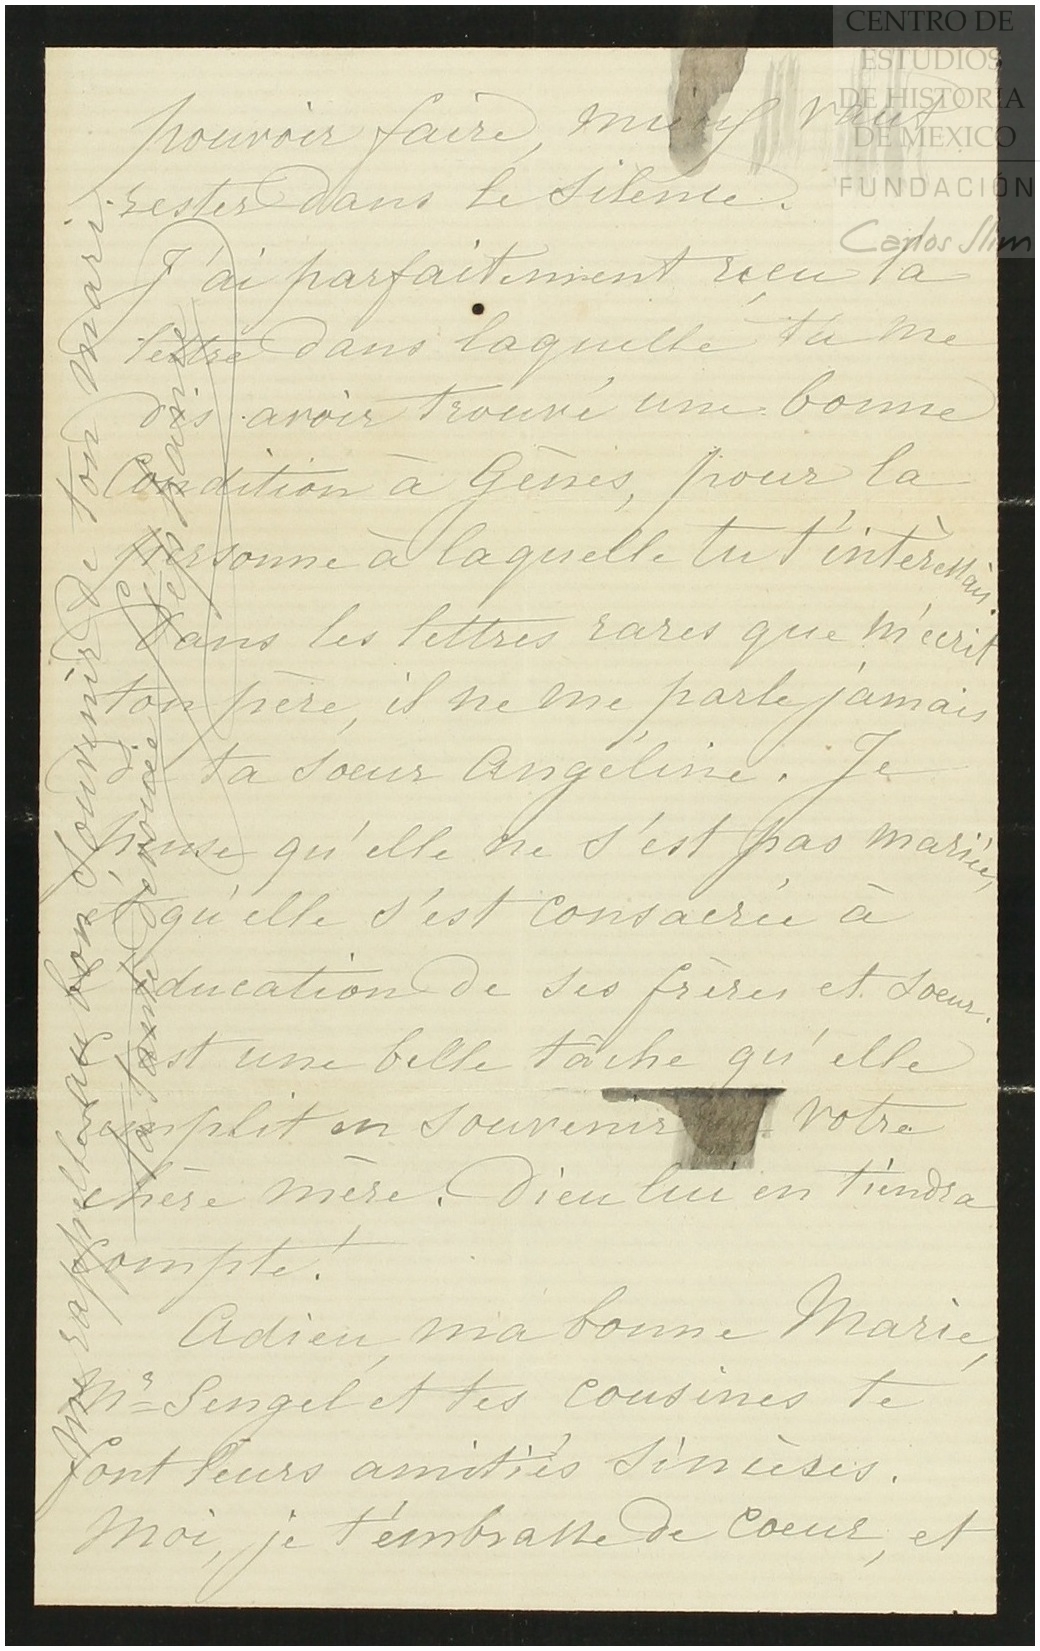 CENTRO DE
ESTUDIOS
DE HISTORIA
DE MEXICO
FUNDACIÓN
Carlos Slim
pouvoir faire, mieux vaut
rester dans le silence.
J'ai parfaitement reçu la
lettre dans laquelle tu me
dis avoir trouvé une bonne
Condition à Gènes, pour la
personne à laquelle tu t'intèressais.
Dans les lettres rares que m'écrit
ton père, il ne me parle jamais
de ta soeur Angéline. Je
pense qu'elle ne s'est pas mariée,
et qu'elle s'est consacrée à
l'éducation de ses frères et soeur.
C'est une belle tâche qu'elle
emplit en souvenir votre
chère mère. Dieu lui en tiendra
compte!
Adieu, ma bonne Marie,
Mr Sengel et tes cousines te
font leurs amitiés sincères.
Moi, je t'embrasse de coeur, et
me rappelle au bon souvenir de ton mari.
Ta tante dévouée